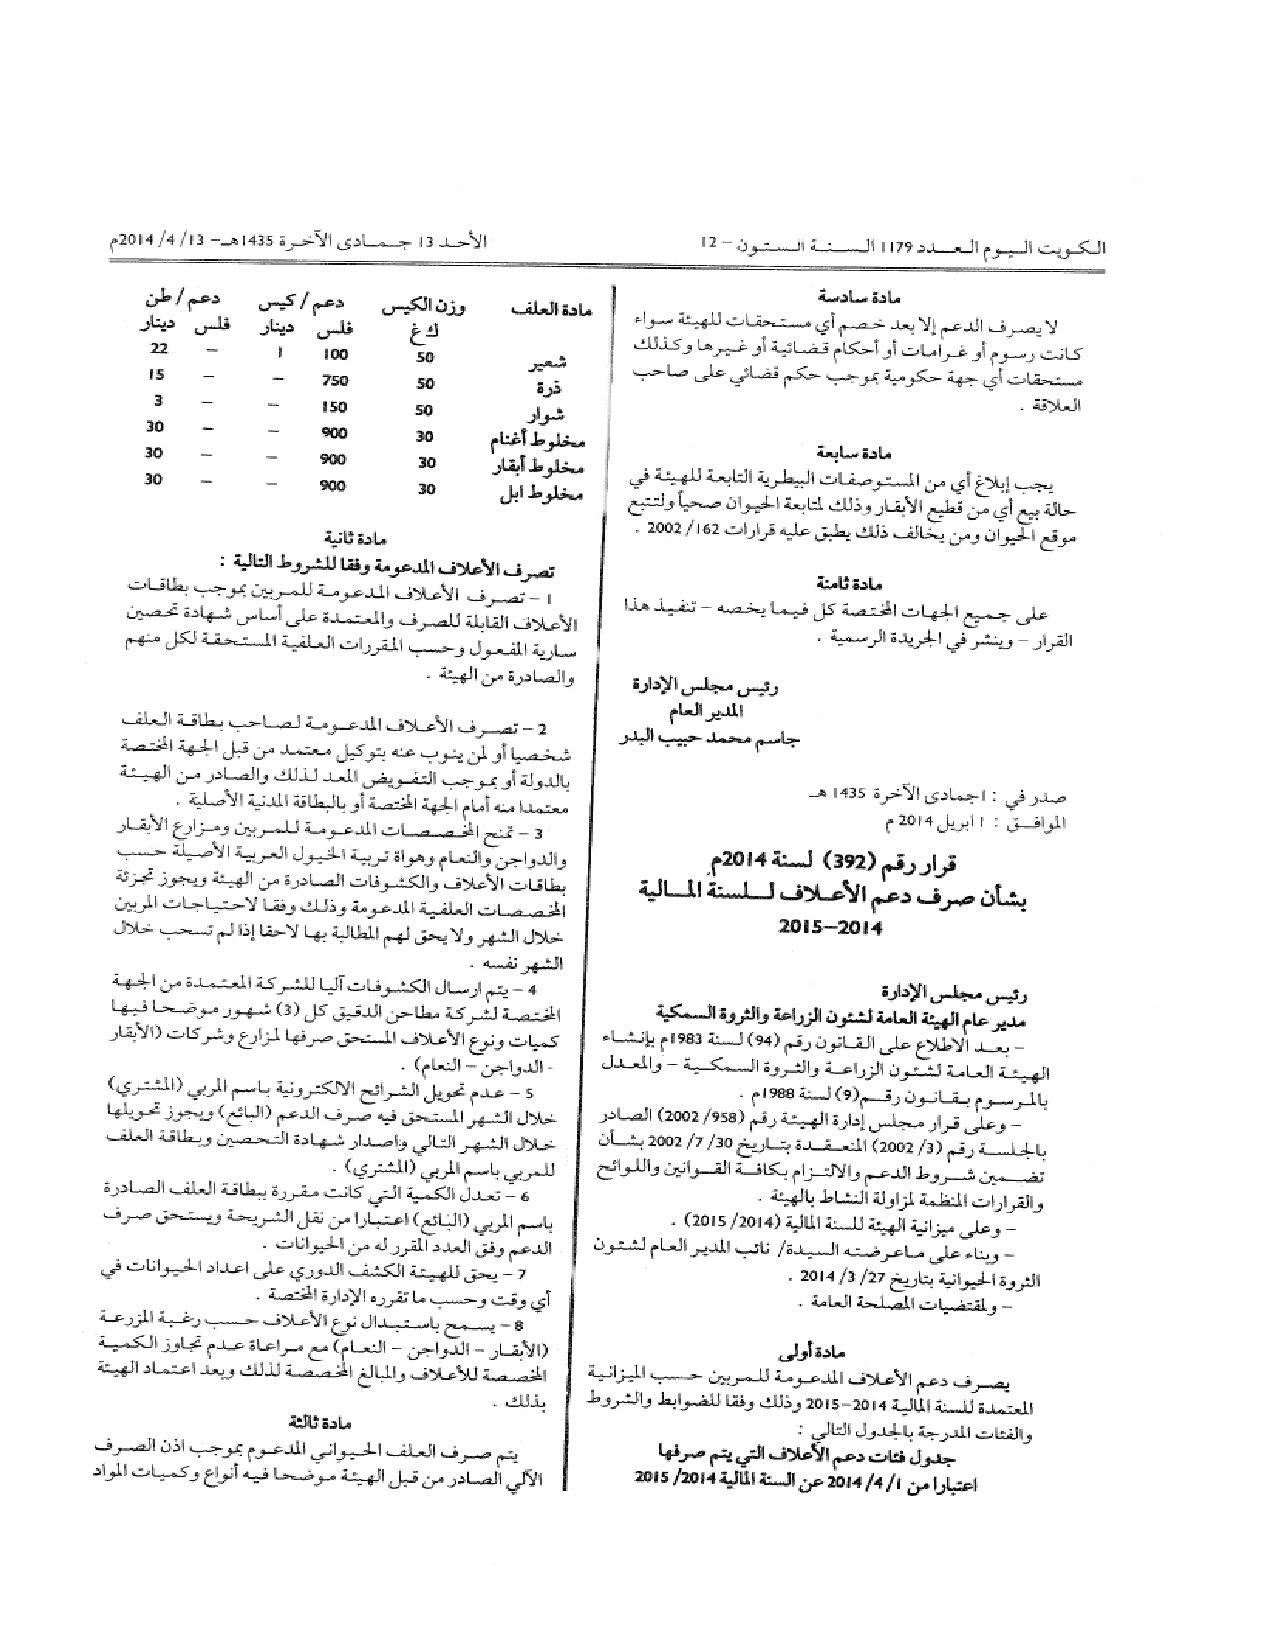 الكويت اليوم العدد 1179 السنة الستون – 12
الأحد 13 جمادى الآخرة 1435هـ – 13/ 4/ 2014م
مادة سادسة
لا يصرف الدعم إلا بعد خصم أي مستحقات للهيئة سواء
كانت رسوم أو غرامات أو أحكام قضائية أو غيرها وكذلك
مستحقات أي جهة حكومية بموجب حكم قضائي على صاحب
العلاقة .
مادة سابعة
يجب إبلاغ أي من المستوصفات البيطرية التابعة للهيئة في
حالة بيع أي من قطيع الأبقار وذلك لمتابعة الحيوان صحياً ولتتبع
موقع الحيوان ومن يخالف ذلك يطبق عليه قرارات 162/ 2002 .
مادة ثامنة
على جميع الجهات المختصة كل فيما يخصه – تنفيذ هذا
القرار – وينشر في الجريدة الرسمية .
رئيس مجلس الإدارة
المدير العام
جاسم محمد حبيب البدر
صدر في : 1 جمادى الآخرة 1435 هـ
الموافق : 1 ابريل 2014 م
قرار رقم (392) لسنة 2014م
بشأن صرف دعم الأعلاف للسنة المالية
2014–2015
رئيس مجلس الإدارة
مدير عام الهيئة العامة لشئون الزراعة والثروة السمكية
– بعد الاطلاع على القانون رقم (94) لسنة 1983م بإنشاء
الهيئة العامة لشئون الزراعة والثروة السمكية – والمعدل
بالمرسوم بقانون رقم (9) لسنة 1988م .
– وعلى قرار مجلس إدارة الهيئة رقم (958/ 2002) الصادر
بالجلسة رقم (3/ 2002) المنعقدة بتاريخ 30/ 7/ 2002 بشأن
تضمين شروط الدعم والالتزام بكافة القوانين واللوائح
والقرارات المنظمة لمزاولة النشاط بالهيئة .
– وعلى ميزانية الهيئة للسنة المالية (2014/ 2015) .
– وبناء على ماعرضته السيدة/ نائب المدير العام لشئون
الثروة الحيوانية بتاريخ 27/ 3/ 2014 .
– ولمقتضيات المصلحة العامة .
مادة أولى
يصرف دعم الأعلاف المدعومة للمربين حسب الميزانية
المعتمدة للسنة المالية 2014–2015 وذلك وفقا للضوابط والشروط
والفئات المدرجة بالجدول التالي :
جدول فئات دعم الأعلاف التي يتم صرفها
اعتبارا من 1/ 4/ 2014 عن السنة المالية 2014/ 2015
مادة العلف وزن الكيس دعم/ كيس دعم/ طن
ك غ فلس دينار فلس دينار
شعير 50 100 1 – 22
ذرة 50 750 – – 15
شوار 50 150 – – 3
مخلوط أغنام 30 900 – – 30
مخلوط أبقار 30 900 – – 30
مخلوط ابل 30 900 – – 30
مادة ثانية
تصرف الأعلاف المدعومة وفقا للشروط التالية :
1 – تصرف الأعلاف المدعومة للمربين بموجب بطاقات
الأعلاف القابلة للصرف والمعتمدة على أساس شهادة تحصين
سارية المفعول وحسب المقررات العلفية المستحقة لكل منهم
والصادرة من الهيئة .
2 – تصرف الأعلاف المدعومة لصاحب بطاقة العلف
شخصيا أو لمن ينوب عنه بتوكيل معتمد من قبل الجهة المختصة
بالدولة أو بموجب التفويض المعد لذلك والصادر من الهيئة
معتمدا منه أمام الجهة المختصة أو بالبطاقة المدنية الأصلية .
3 – تمنح المخصصات المدعومة للمربين ومزارع الأبقار
والدواجن والنعام وهواة تربية الخيول العربية الأصيلة حسب
بطاقات الأعلاف والكشوفات الصادرة من الهيئة ويجوز تجزئة
المخصصات العلفية المدعومة وذلك وفقا لاحتياجات المربين
خلال الشهر ولا يحق لهم المطالبة بها لاحقا إذا لم تسحب خلال
الشهر نفسه .
4 – يتم ارسال الكشوفات آليا للشركة المعتمدة من الجهة
المختصة لشركة مطاحن الدقيق كل (3) شهور موضحا فيها
كميات ونوع الأعلاف المستحق صرفها لمزارع وشركات (الأبقار
- الدواجن – النعام) .
5 – عدم تحويل الشرائح الالكترونية باسم المربي (المشتري)
خلال الشهر المستحق فيه صرف الدعم (البائع) ويجوز تحويلها
خلال الشهر التالي واصدار شهادة التحصين وبطاقة العلف
للمربي باسم المربي (المشتري) .
6 – تعدل الكمية التي كانت مقررة ببطاقة العلف الصادرة
باسم المربي (البائع) اعتبارا من نقل الشريحة ويستحق صرف
الدعم وفق العدد المقرر له من الحيوانات .
7 – يحق للهيئة الكشف الدوري على اعداد الحيوانات في
أي وقت وحسب ما تقرره الإدارة المختصة .
8 – يسمح باستبدال نوع الأعلاف حسب رغبة المزرعة
(الأبقار – الدواجن – النعام) مع مراعاة عدم تجاوز الكمية
المخصصة للأعلاف والمبالغ المخصصة لذلك وبعد اعتماد الهيئة
بذلك .
مادة ثالثة
يتم صرف العلف الحيواني المدعوم بموجب اذن الصرف
الآلي الصادر من قبل الهيئة موضحا فيه أنواع وكميات المواد